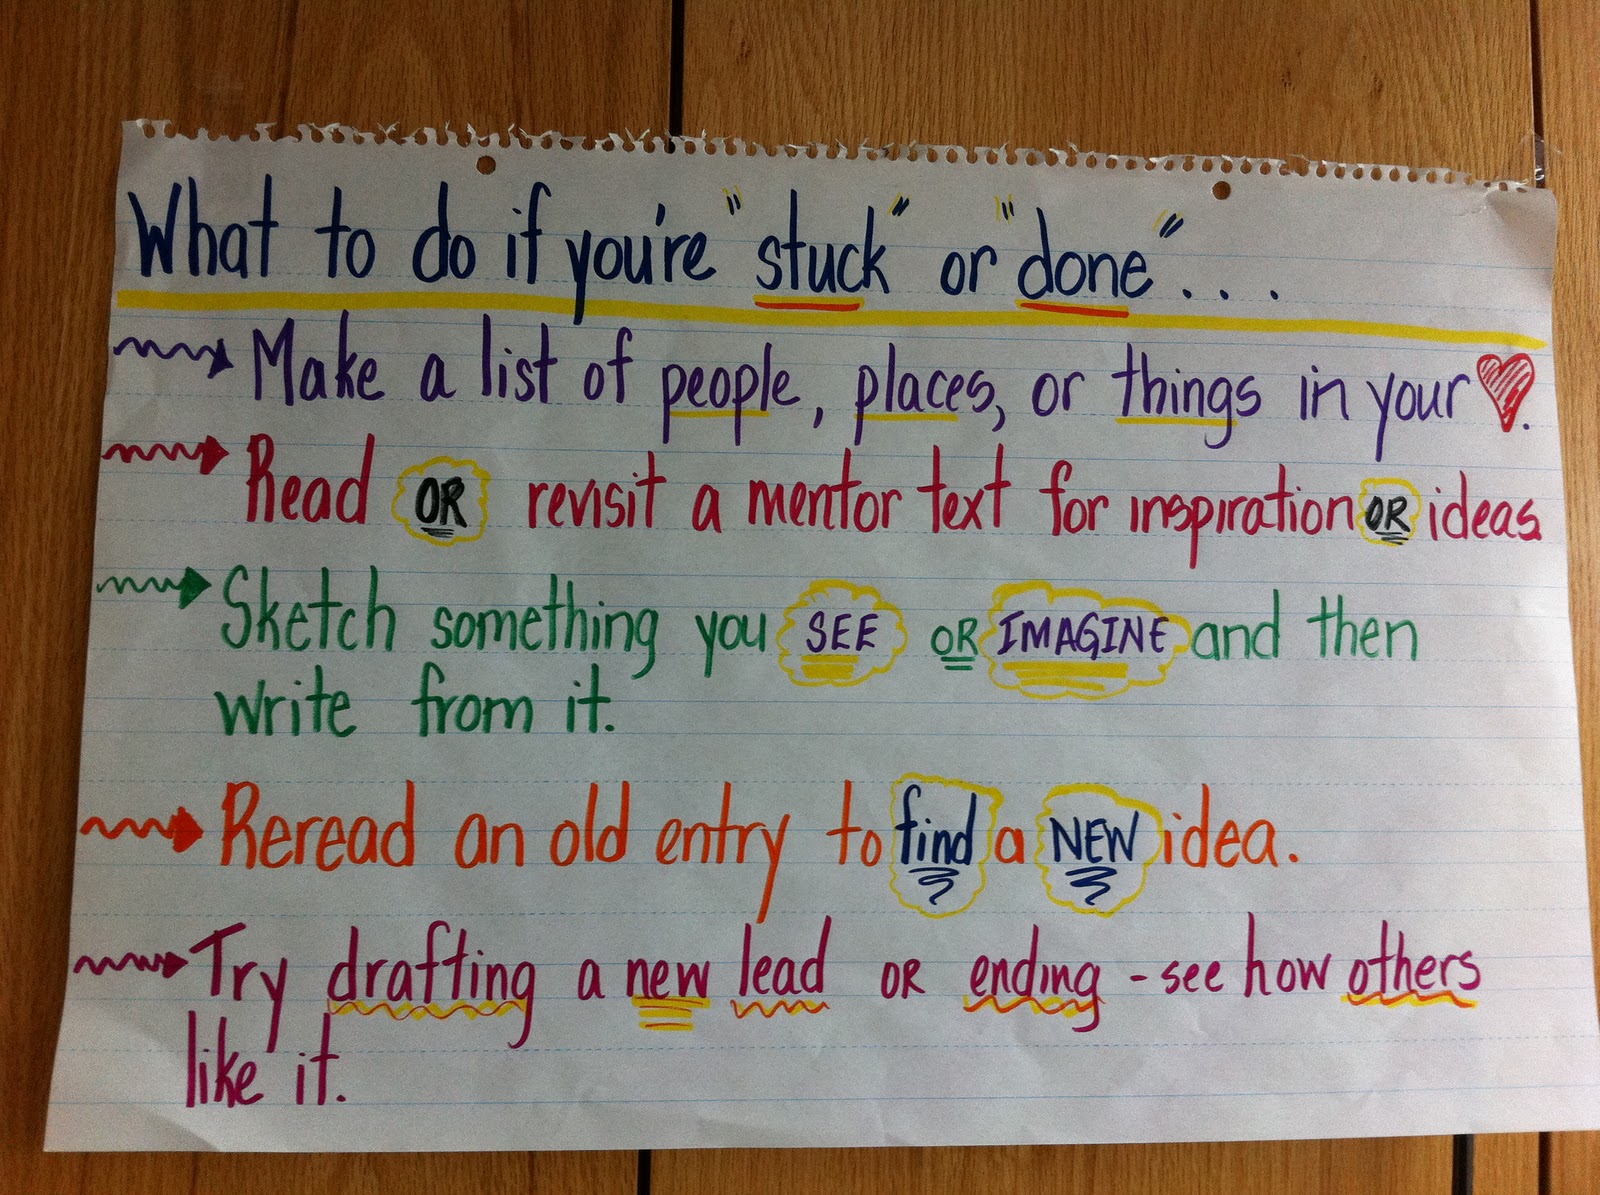 What to do if you're "stuck" or "done"...
Make a list of people, places, or things in your ♥.
Read OR revisit a mentor text for inspiration OR ideas
Sketch something you SEE OR IMAGINE and then
write from it.
Reread an old entry to find a NEW idea.
Try drafting a new lead OR ending - see how others
like it.